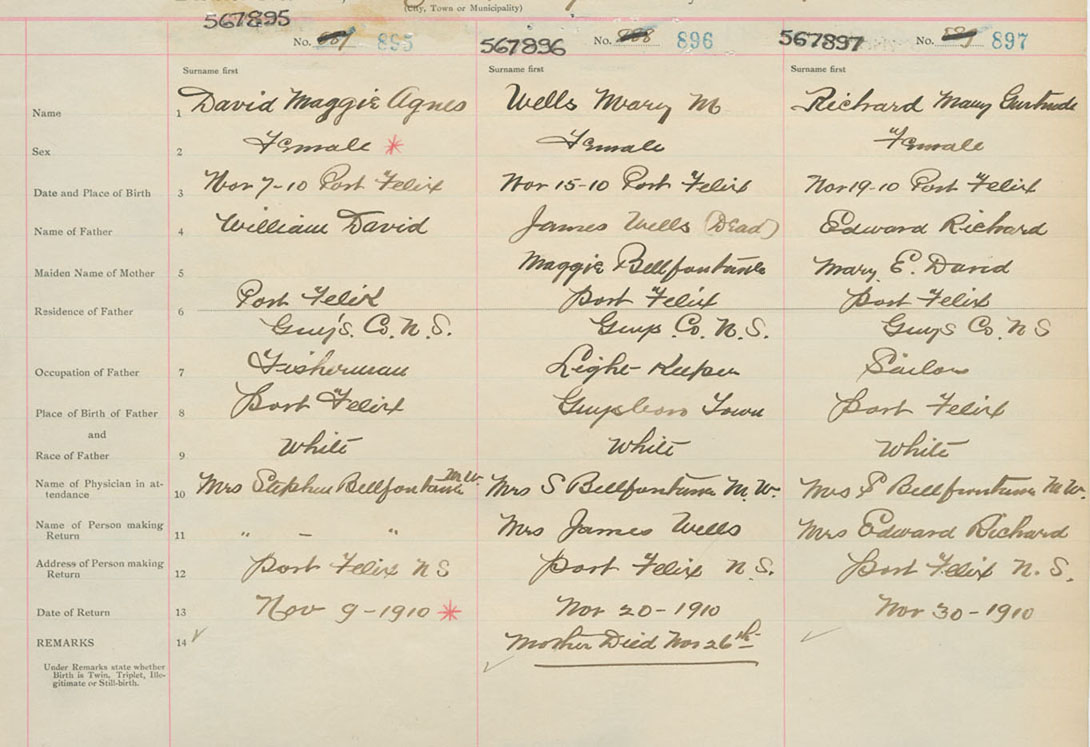 (City, Town or Municipality)
567895 567896 567897
No. 895 No. 896 No. 897
Surname first Surname first Surname first
Name 1 David Maggie Agnes Wells Mary M Richard Mary Gertrude
Sex 2 Female * Female Female
Date and Place of Birth 3 Nov 7-10 Port Felix Nov 15-10 Port Felix Nov 19-10 Port Felix
Name of Father 4 William David James Wells (Dead) Edward Richard
Maiden Name of Mother 5 Maggie Bellfontaine Mary E. David
Residence of Father 6 Port Felix Port Felix Port Felix
Guys. Co. N.S. Guys Co. N.S. Guys Co. N S
Occupation of Father 7 Fisherman Light-Keeper Sailor
Place of Birth of Father 8 Port Felix Guysboro Town Port Felix
and
Race of Father 9 White White White
Name of Physician in at-
tendance 10 Mrs Stephen Bellfontaine M.W. Mrs S Bellfontaine M.W. Mrs Bellfontaine M.W.
Name of Person making
Return 11 " – " Mrs James Wells Mrs Edward Richard
Address of Person making
Return 12 Port Felix N S Port Felix N.S. Port Felix N.S.
Date of Return 13 Nov 9-1910 * Nov 20-1910 Nov 30-1910
REMARKS 14 ✓ Mother Died Nov 26th
Under Remarks state whether
Birth is Twin, Triplet, Ille-
gitimate or Still-birth.